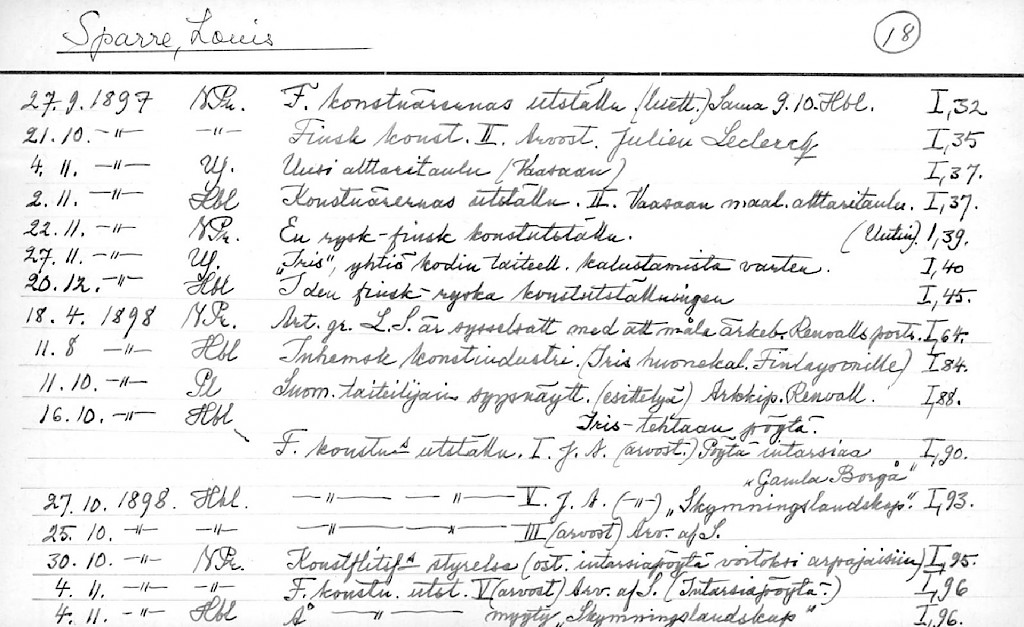 Sparre, Louis 18
27.9.1897 N.Pr. F. konstnärernas utställn. (luett.) Sama 9.10. Hbl. I,32
21.10. -"- -"- Finsk konst. II. Arvost. Julien Leclercq I,35
4.11. -"- Uf. Uusi alttaritaulu (Vaasaan) I,37.
2.11. -"- Hbl Konstnärernas utställn. II. Vaasaan maal. alttaritaulu. I,37.
22.11. -"- N.Pr. En rysk-finsk konstutställn. (Uutin). I,39.
27.11. -"- Uf. "Iris", yhtiö kodin taiteell. kalustamista varten. I,40
20.12. -"- Hbl I den finsk-ryska konstutställningen I,45.
18.4. 1898 N.Pr. Art. gr. L.S. är sysselsatt med att måla ärkeb. Renvalls portr. I,64.
11.8 -"- Hbl Inhemsk konstindustri. (Iris huonekal. Finlaysonille) I,84.
11.10. -"- Pl Suom. taiteilijain syysnäytt. (esittelyä) Arkkip. Renvall. I,88.
16.10. -"- Hbl Iris-tehtaan pöytä.
F. konstns utställn. I. J.A. (arvost.) Pöytä intarsiaa I,90.
"Gamla Borgå"
27.10. 1898. Hbl. -"- -"- V. J.A. (-"-) "Skymningslandskap". I,93.
25.10. -"- -"- -"- -"- III (arvost) Arv. af S.
30.10. -"- N.Pr. Konstflitsfs styrelse (ost. intarsiapöytä voitoksi arpajaisiin) I,95.
4.11. -"- -"- F. konstn. utst. V (arvost) Arv. af S. (Intarsiapöytä.) I,96
4.11. -"- Hbl Å -"- -"- myyty "Skymningslandskap" I,96.